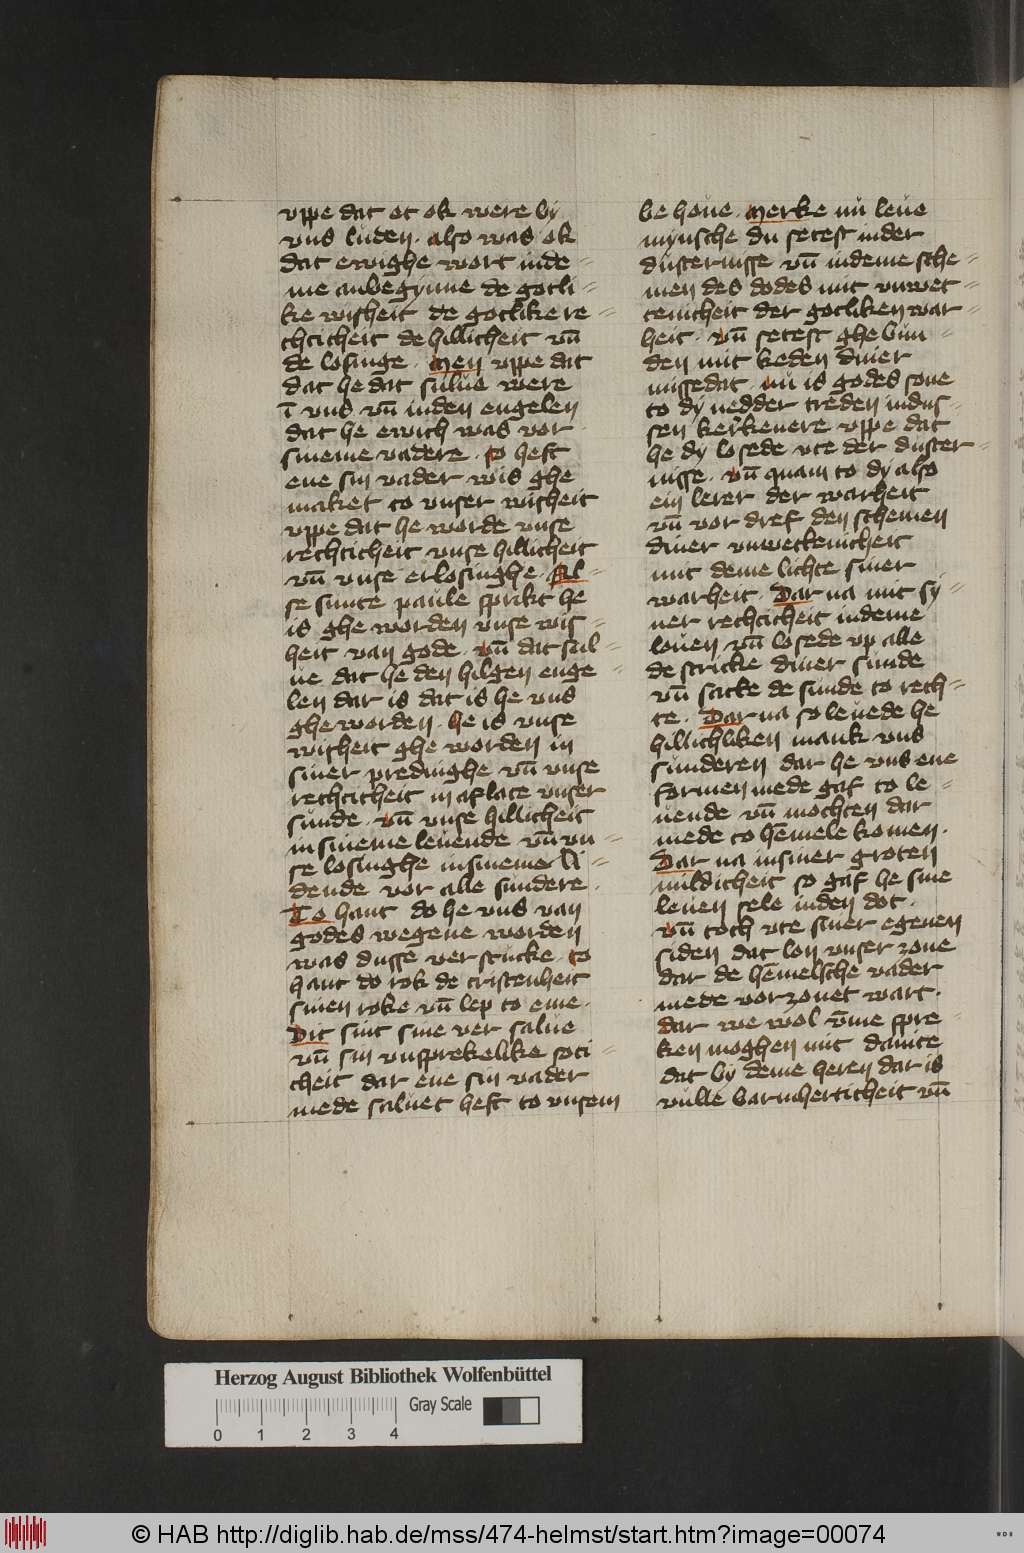 vppe dat ot ok were by
vns luden. also was ok
dat ewighe wort inde=
me anbegynne de gotli=
ke wisheit de gotlike re=
chticheit de hillicheit vn̄
de losinge. Men vppe dat
dat he dat sulue were
ī vns vn̄ inden engelen
dat he ewich was vor
sineme vadere. to heft
ene sin vader wis ghe
maket to vnser wisheit
vppe dat he worde vnse
rechticheit vnse hillicheit
vn̄ vnse erlosinghe. Al=
se sunte paule sprikt he
is ghe worden vnse wis=
heit van gode. vn̄ dat sul=
ue dat he den hilgen enge=
len dar is dat is he vns
ghe worden. he is vnse
wisheit ghe worden in
siner predinghe vn̄ vnse
rechticheit in aflate vnser
sunde. vn̄ vnse hillicheit
in sineme leuende vn̄ vn=
se losinghe insineme li=
dende vor alle sundere.
To hant do he vns van
godes wegene worden
was dusse ver stucke. to
hant do rok de cristenheit
sinen roke vn̄ lep to eme.
Dit sint sine ver salue
vn̄ sin vnsprekelike soti=
cheit dar ene sin vader
mede saluet heft to vnsem
be houe. Merke nu leue
mynsche du setest inder
dusternisse vn̄ indeme sche=
men des dodes mit vnwet=
tenicheit der gotliken war=
heit. vn̄ setest ghe bun=
den mit keden diner
missedat. nu is godes sone
to dy nedder treden indus=
sen kerkenere vppe dat
he dy losede vte der duster=
nisse. vn̄ quam to dy also
ein lerer der warheit
vn̄ vor dref den schemen
diner vnwettenicheit
mit deme lichte siner
warheit. Dar na mit sy=
ner rechticheit indeme
louen vn̄ losede vp alle
de stricke diner sunde
vn̄ satte de sunde to rech=
te. Dar na so leuede he
hillichliken mank vns
sunderen dar he vns ene
formen mede gaf to le=
uende vn̄ mochten dar
mede to hēmele komen.
Dar na insiner groten
mildicheit so gaf he sine
leuen sele inden dot.
vn̄ toch vte siner egenen
siden dat lon vnser zone
dar de hēmelsche vader
mede vorzonet wart.
dar we wol vm̄e spre=
ken moghen mit dauite
dat by deme heren dar is
vulle barmherticheit vn̄
Herzog August Bibliothek Wolfenbüttel
Gray Scale
0 1 2 3 4
© HAB http://diglib.hab.de/mss/474-helmst/start.htm?image=00074